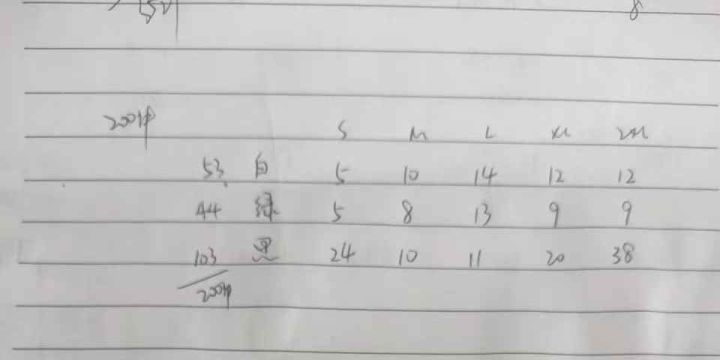 150 8
200件 S M L XL 2XL
53 白 5 10 14 12 12
44 绿 5 8 13 9 9
103 黑 24 10 11 20 38
200件